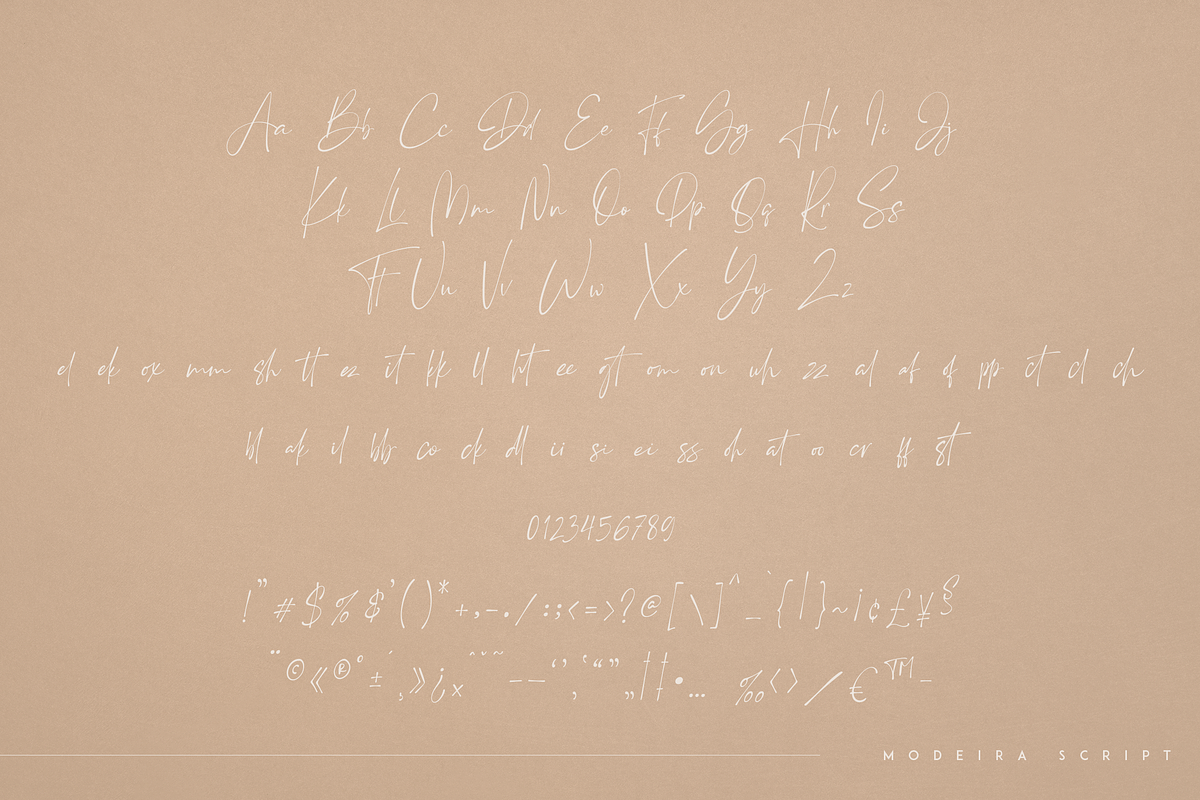 Aa Bb Cc Dd Ee Ff Gg Hh Ii Jj
Kk Ll Mm Nn Oo Pp Qq Rr Ss
Tt Uu Vv Ww Xx Yy Zz
el ek ox mm sh tt ez it kk ll ht ee gt om on uh zz al af of pp ct cl ch
bl ak il bb co ck dl ii si ei ss oh at oo cr ff st
0123456789
!"#$%&'()*+,-./:;<=>?@[\]^_`{|}~¡¢£¥§
¨©«®°±´¸»¿×ˆ˘˜–—‘’‚‛“”„†‡•…‰‹›⁄€™−
MODEIRA SCRIPT